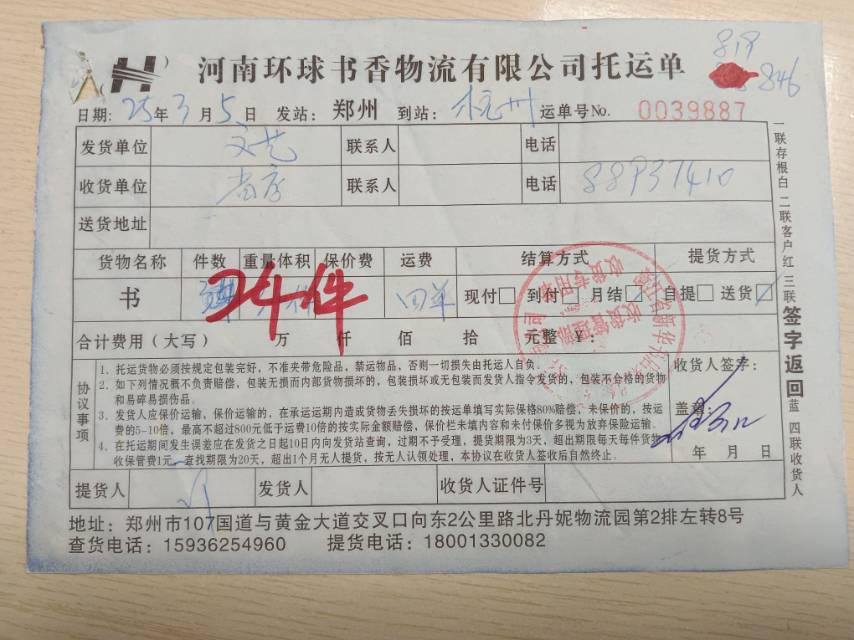 河南环球书香物流有限公司托运单
819
846
日期: 25年3月5日 发站: 郑州 到站: 杭州 运单号No. 0039887
发货单位 文艺 联系人 电话
收货单位 省店 联系人 电话 88937410
送货地址
货物名称 件数 重量体积 保价费 运费 结算方式 提货方式
书 24件 回单 现付□ 到付□ 月结☑ 自提□ 送货☑
合计费用（大写） 万 仟 佰 拾 元整 ￥:
协议事项
1、托运货物必须按规定包装完好，不准夹带危险品，禁运物品，否则一切损失由托运人自负。
2、如下列情况概不负责赔偿，包装无损而内部货物损坏的，包装损坏或无包装而发货人指令发货的，包装不合格的货物
和易碎易损伤品。
3、发货人应保价运输，保价运输的，在承运运期内造成货物丢失损坏的按运单填写实际保格80%赔偿，未保价的，按运
费的5-10倍，最高不超过800元低于运费10倍的按实际金额赔偿，保价栏未填内容和未付保价多视为放弃保险运输。
4、在托运期间发生误差应在发货之日起10日内向发货站查询，过期不予受理，提货期限为3天，超出期限每天每件货物
收保管费1元，查找期限为20天，超出1个月无人提货，按无人认领处理，本协议在收货人签收后自然终止。
收货人签字:
盖章:
年 月 日
提货人 发货人 收货人证件号
地址: 郑州市107国道与黄金大道交叉口向东2公里路北丹妮物流园第2排左转8号
查货电话: 15936254960 提货电话: 18001330082
一联存根白 二联客户红 三联签字返回蓝 四联收货人
收货专用章
收货管理部